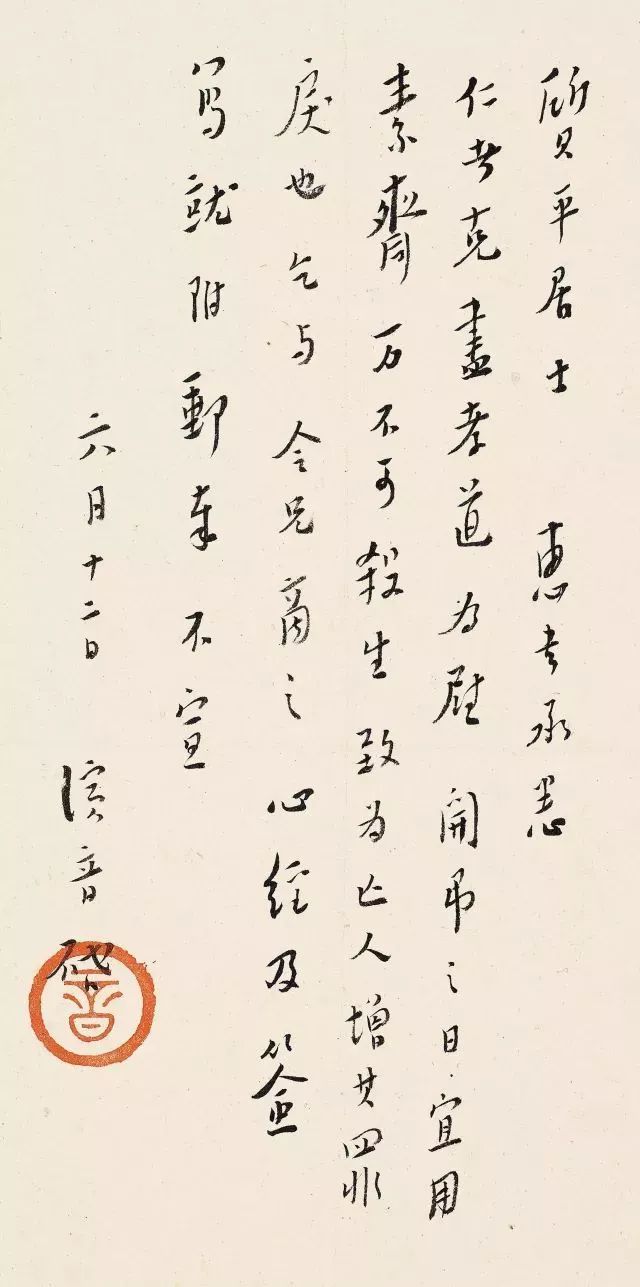 質平居士　惠書承悉
仁者克盡孝道為慰開弔之日宜用
素齋万不可殺生致為亡人增其罪
戾也乞与令兄商之心經及簽
寫就附郵奉不宣
六月十二日　演音啓
音